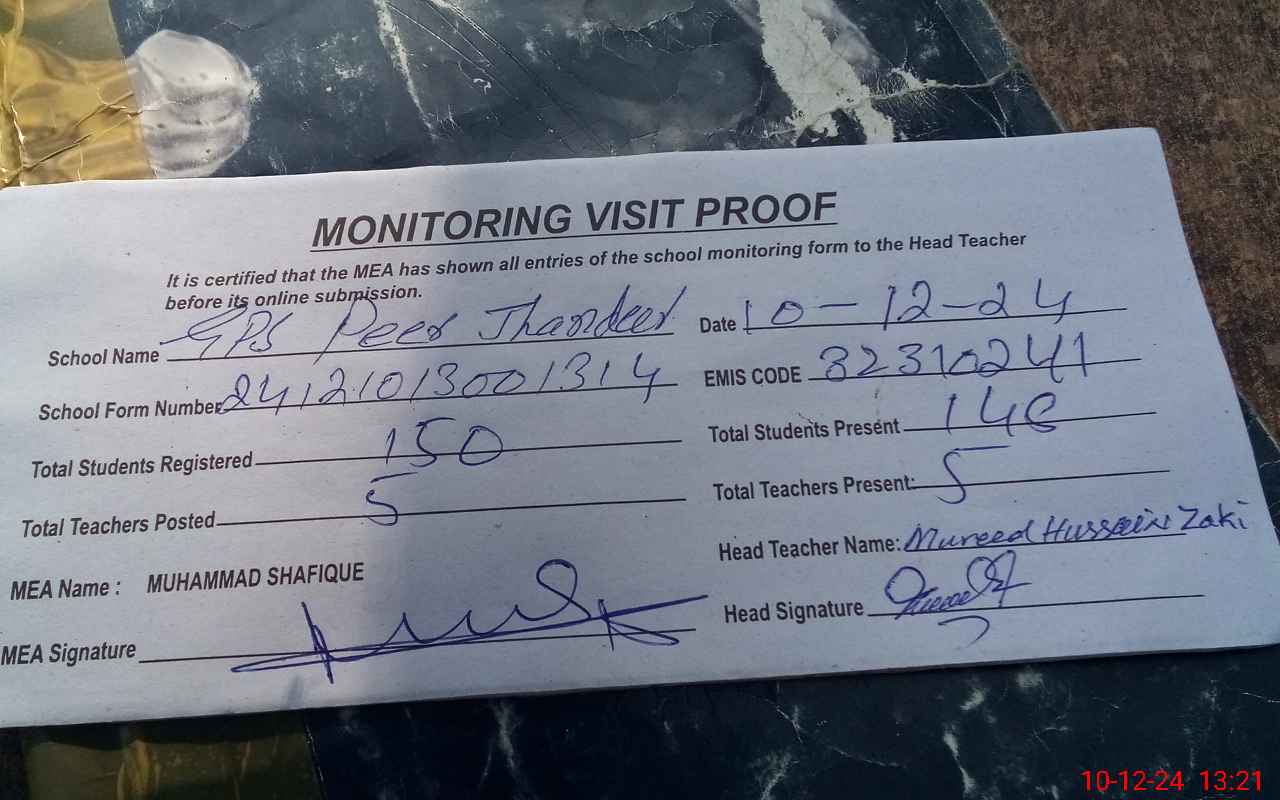 MONITORING VISIT PROOF
It is certified that the MEA has shown all entries of the school monitoring form to the Head Teacher
before its online submission.
School Name GPS Peer Jhandeer Date 10-12-24
School Form Number 24121013001314 EMIS CODE 32310241
Total Students Registered 150 Total Students Present 146
Total Teachers Posted 5 Total Teachers Present: 5
MEA Name : MUHAMMAD SHAFIQUE Head Teacher Name: Mureed Hussain Zaki
MEA Signature Head Signature
10-12-24 13:21